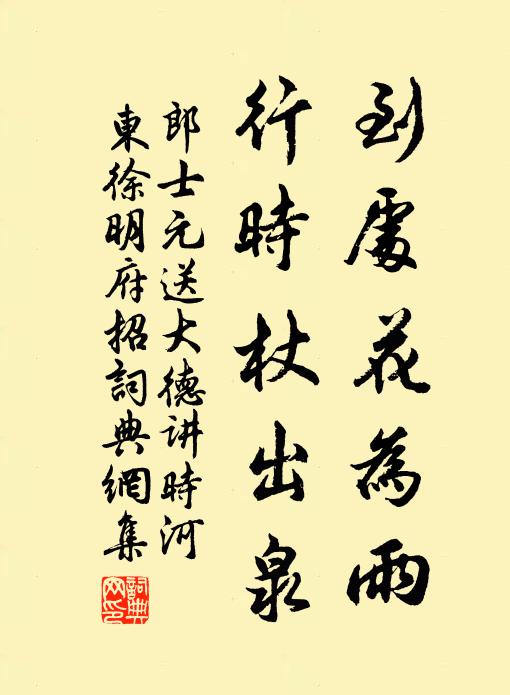 到處花為雨
行時杖出泉
郎士元送大德讲時河
東徐明府招詞典網集
詞典網印